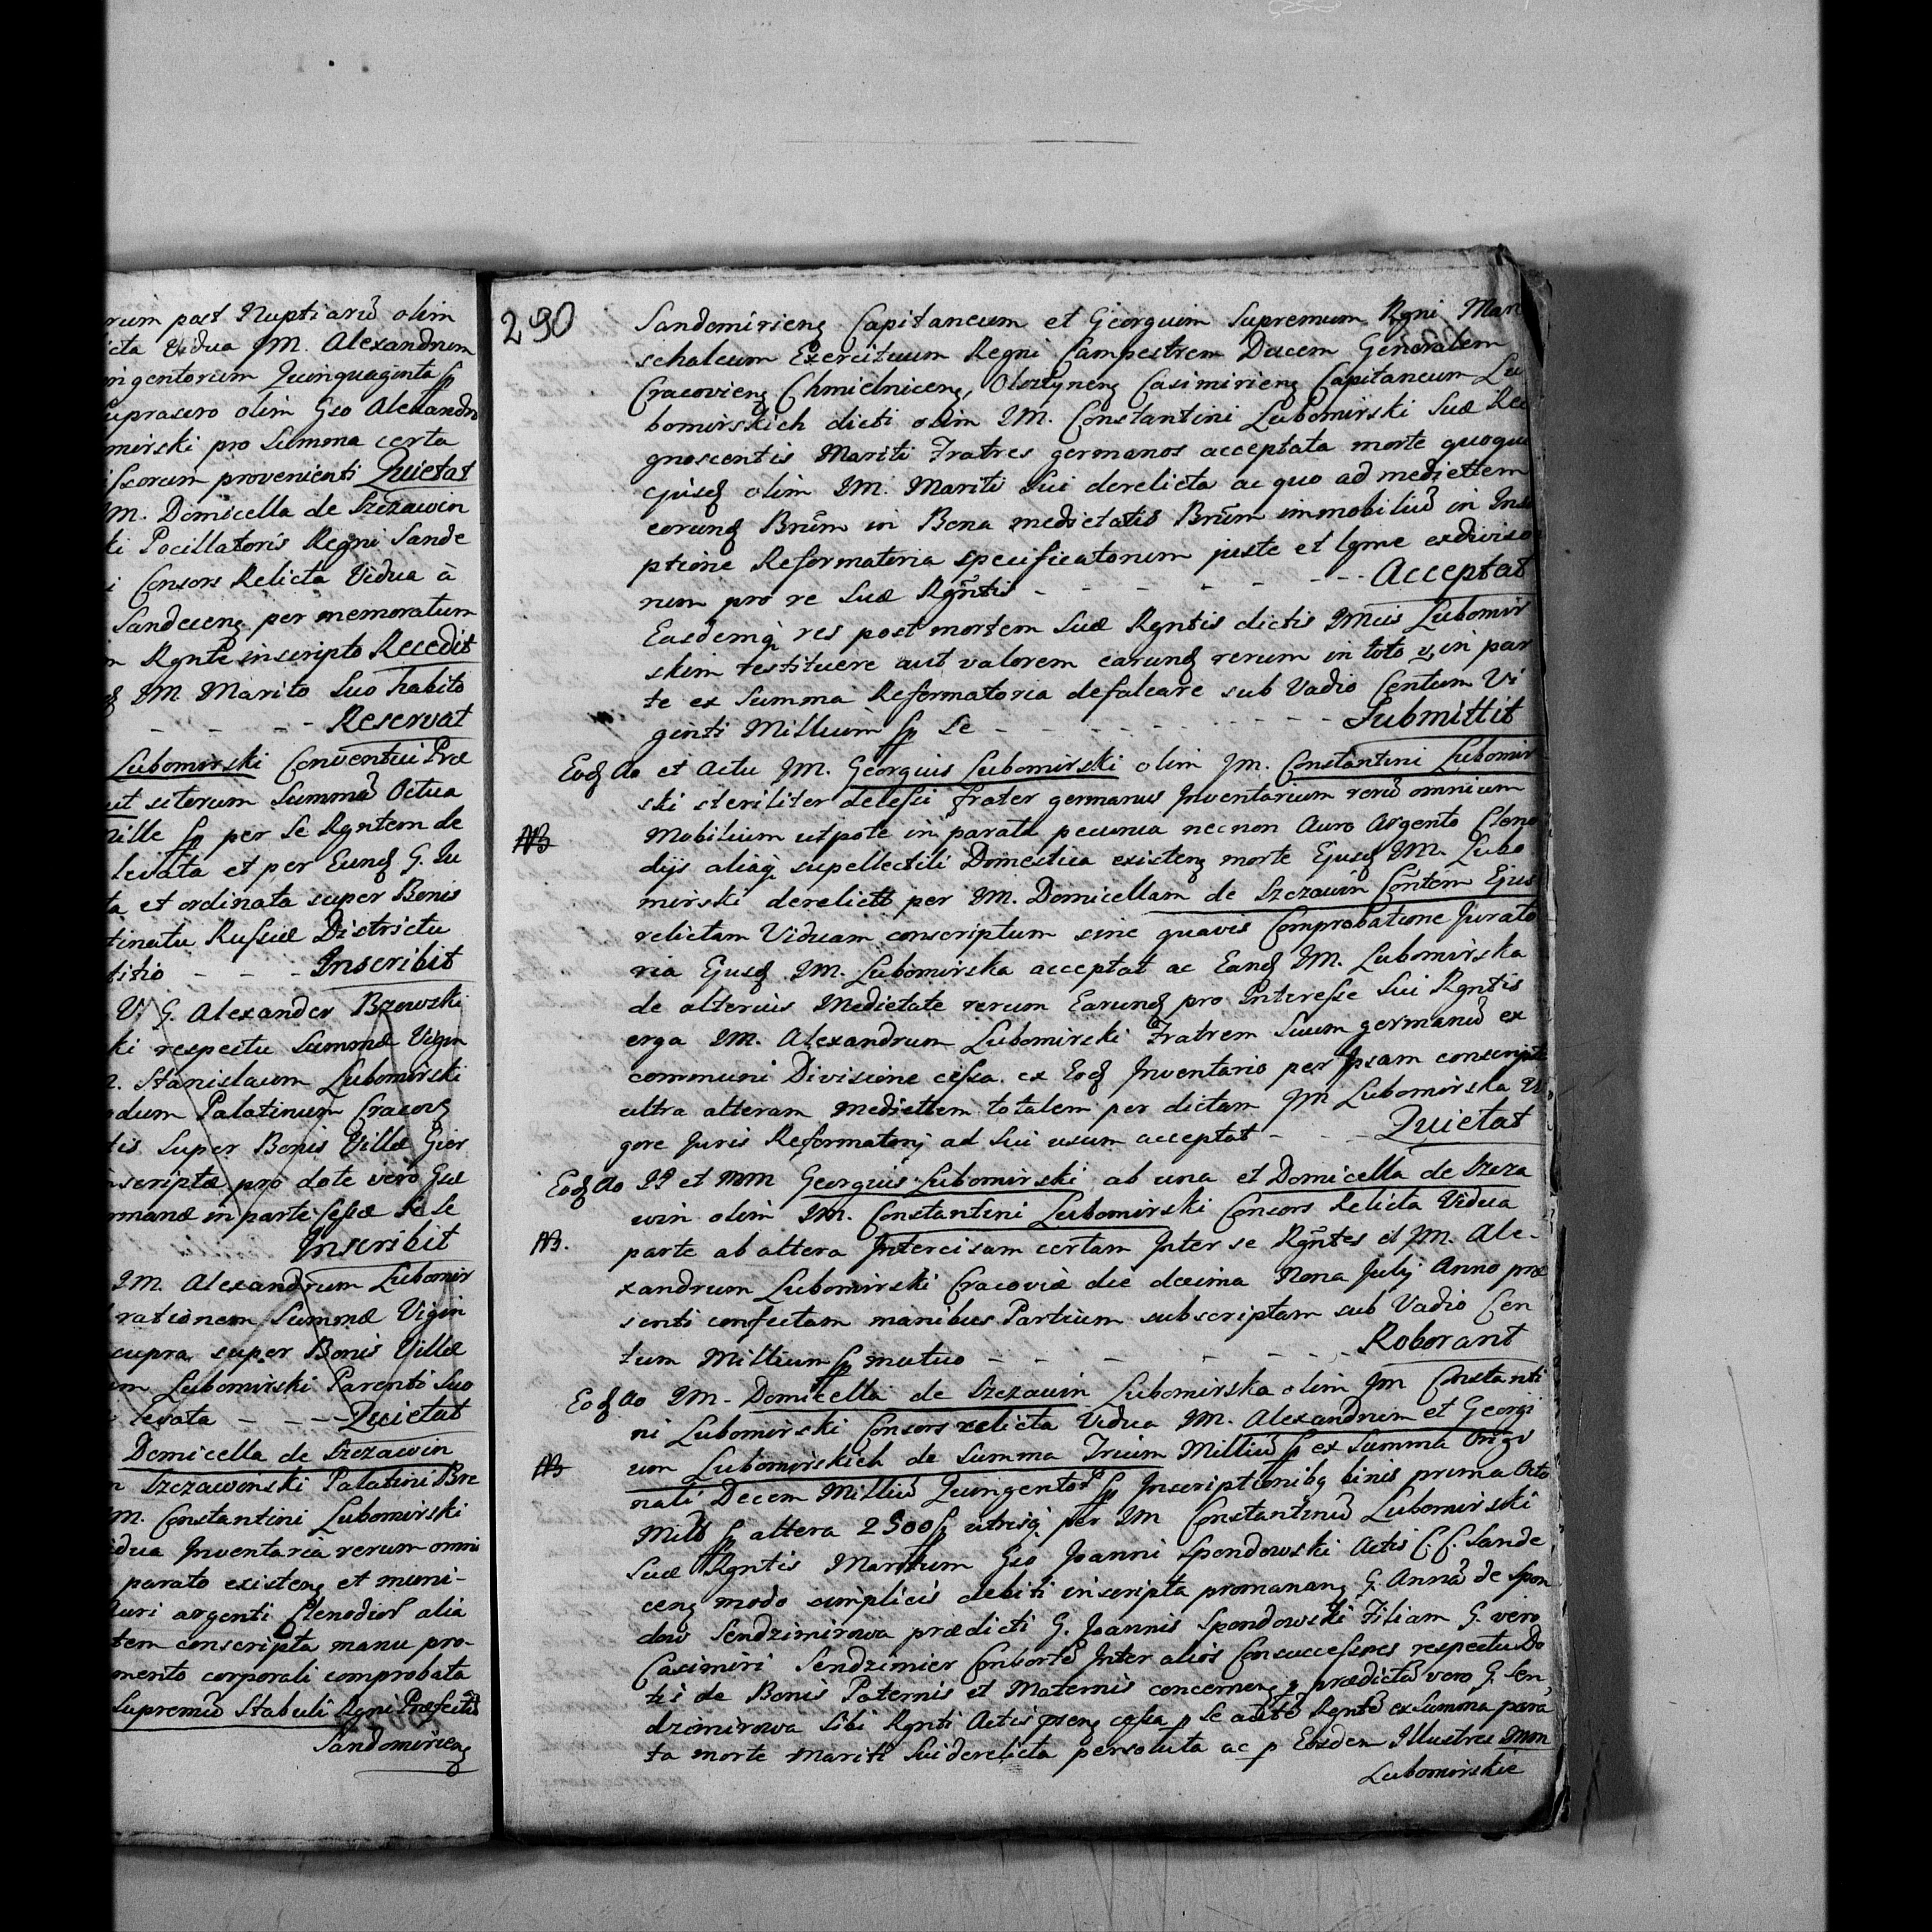 rum post Nuptiarũ olim
icta Vidua JM. Alexandrum
ingentorum Quinquaginta fp
uprascro olim Gso Alexandro
mirski pro Summa certa
iscorum provenienti Quietat
M. Domicella de Szczawin
ki Pocillatoris Regni Sande
i Consors Relicta Vidua à
Sandeceng per memoratum
Rgnte inscripto Recedit
JM Marito Suo habito
- - - - Reservat
Lubomirski Conventui Præ
uit siterum Summã Octua
mille fp per Se Rgntem de
levata et per Eund G. Ju
ta et ordinata super Bonis
tinatu Russiæ Districtu
titio - - - Inscribit
V. G. Alexander Brzowski
ki respectu Summæ Vigin
Stanislaum Lubomirski
odum Palatinum Cracov
tis Super Bonis Villæ Gier
nscriptæ pro dote vero Gsæ
rmanæ in parte Cessæ Se Se
Inscribit
JM. Alexandrum Lubomir
rationem Summæ Vigin
supra super Bonis Villæ
m Lubomirski Parenti Suo
levata - - - Quietat
Domicella de Szczawin
Szczawinski Palatini Bre
M. Constantini Lubomirski
idua Inventaria rerum omni
parato existeng et muni-
Auri argenti Clenodior alia
tem conscripta manu pro-
mento corporali comprobata
Supremũ Stabuli Rgni Præfectũ
Sandomirieng
290
Sandomirieng Capitaneum et Georgium Supremum Rgni Mar
schalcum Exercituum Regni Campestrem Ducem Generalem
Cracovieng Chmielniceng, Olsztyneng Casimirieng Capitaneum Lu
bomirskich dicti olim JM. Constantini Lubomirski Suæ Rec
gnoscentis Mariti Fratres germanos acceptata morte quoque
ejusd olim JM. Mariti Sui derelicta ac quo ad mediettem
eorund Brũm in Bona medietatis Brũm immobiliũ in Ins
ptione Reformatoria specificatorum juste et lgme exdiviso
rum pro re Suæ Rgñtis - - - - - - Acceptat
Easdemq res post mortem Suæ Rgntis dictis JMcis Lubomir
skim restituere aut valorem earund rerum in toto v in par
te ex Summa Reformatoria defalcare sub Vadio Centum Vi
ginti Millium fp Se - - - - - - - Submittit
Eod Ao et Actu JM. Georgius Lubomirski olim JM. Constantini Lubomir
ski steriliter decessi frater germanus Inventarium rerũ omnium
NB Mobilium utpote in parata pecunia necnon Auro Argento Cleno
dijs aliaq supellectili Domestica existeng morte Ejusd JM. Lubo
mirski derelictt per JM. Domicellam de Szczawin Cõntem Ejus
relictam Viduam conscriptum sine quavis Comprobatione Jurato
ria Ejusd JM. Lubomirska acceptat ac Eand JM. Lubomirska
de alterius Medietate rerum Earund pro Interesse Sui Rgntis
erga JM. Alexandrum Lubomirski Fratrem Suum germanũ ex
communi Divisione cessa. ex Eod Inventario per Ipsam conscript
ultra alteram mediettem totalem per dictam JM Lubomirska Vi
gore Juris Reformatorij ad Sui usum acceptat - - - Quietat
Eod Ao JJ et MM Georgius Lubomirski ab una et Domicella de Szcza
win olim JM. Constantini Lubomirski Consors Relicta Vidua
NB. parte ab altera Intercisam certam Inter se Rgñtes et JM. Ale-
xandrum Lubomirski Cracoviæ die decima Nona Julij Anno præ
senti confectam manibus Partium subscriptam sub Vadio Cen
tum Millium fp mutuo - - - - - - Roborant
Eod Ao JM. Domicella de Szczawin Lubomirska olim JM Constanti
ni Lubomirski Consors relicta Vidua JM. Alexandrum et Georgi
NB um Lubomirskich de Summa Trium Milliũ fp ex Summa Origi
nali Decem Milliũ Quingentor fp Inscriptionibq binis prima Octo
Mille fp altera 2500 fp utrisq per JM Constantinũ Lubomirski
Suæ Rgntis Maritum Gso Joanni Spondowski Actis C. C. Sande
ceng modo simplicis debiti inscripta promanang G. Annã de Spon
dow Sendzimirowa prædicti G. Joannis Spondowski Filiam G. vero
Casimiri Sendzimier Consortẽ Inter alios Consuccessores respectu Do
tis de Bonis Paternis et Maternis concerneng p prædictã vero G. Sen
dzimirowa Sibi Rgnti Actis pseng cessa p Se actẽ Rgntẽ ex Summa para
ta morte Mariti Sui derelicta persoluta ac p Eosdem Illustres Mon
Lubomirskie